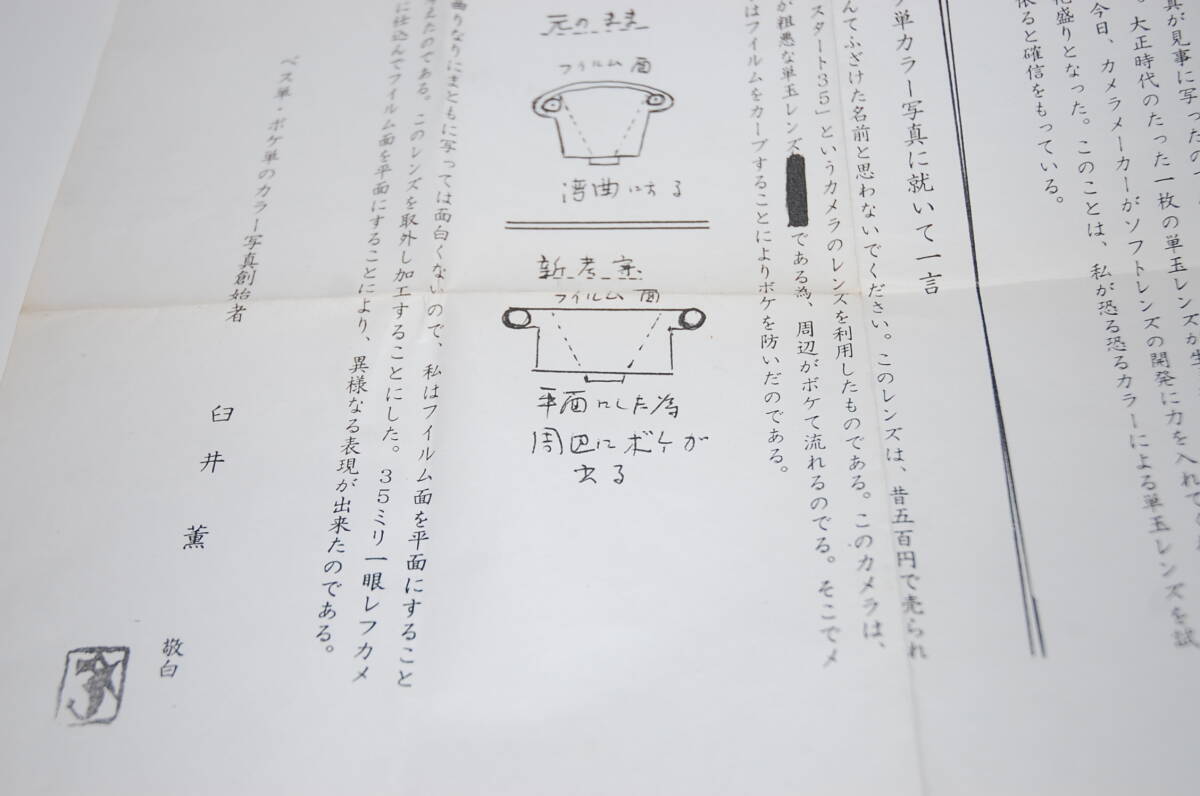 真が見事に写ったの
。大正時代のたった一枚の単玉レンズが生
今日、カメラメーカーがソフトレンズの開発に力を入れて
花盛りとなった。このことは、私が恐る恐るカラーによる単玉レンズを試
依ると確信をもっている。
単カラー写真に就いて一言
んてふざけた名前と思わないでください。このレンズは、昔五百円で売られ
スタート35」というカメラのレンズを利用したものである。このカメラは、
が粗悪な単玉レンズ
である為、周辺がボケて流れるのでる。そこでメ
はフイルムをカーブすることによりボケを防いだのである。
元のまま
フイルム面
湾曲にする
新考案
フイルム面
平面にした為
周辺にボケが
出る
曲りなりにまともに写っては面白くないので、私はフイルム面を平面にすること
考えたのである。このレンズを取外し加工することにした。35ミリ一眼レフカメ
に仕込んでフイルム面を平面にすることにより、異様なる表現が出来たのである。
ベス単・ポケ単のカラー写真創始者
臼井薫
敬白